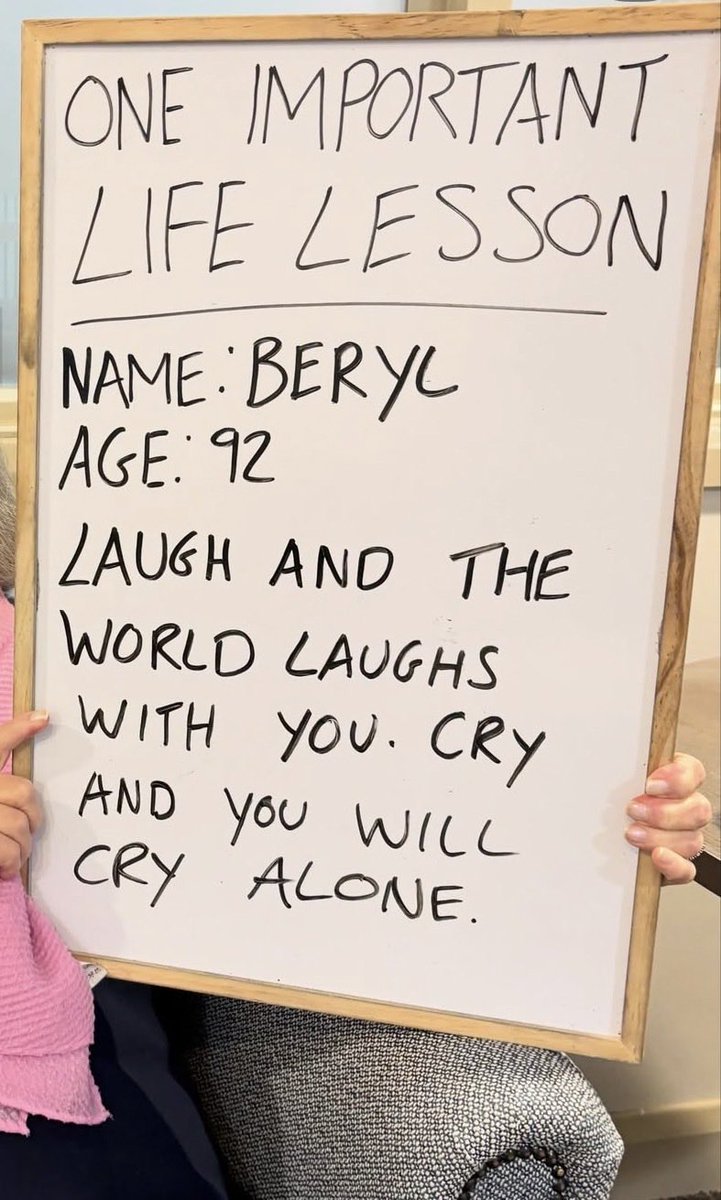 ONE IMPORTANT
LIFE LESSON
NAME: BERYL
AGE: 92
LAUGH AND THE
WORLD LAUGHS
WITH YOU. CRY
AND YOU WILL
CRY ALONE.